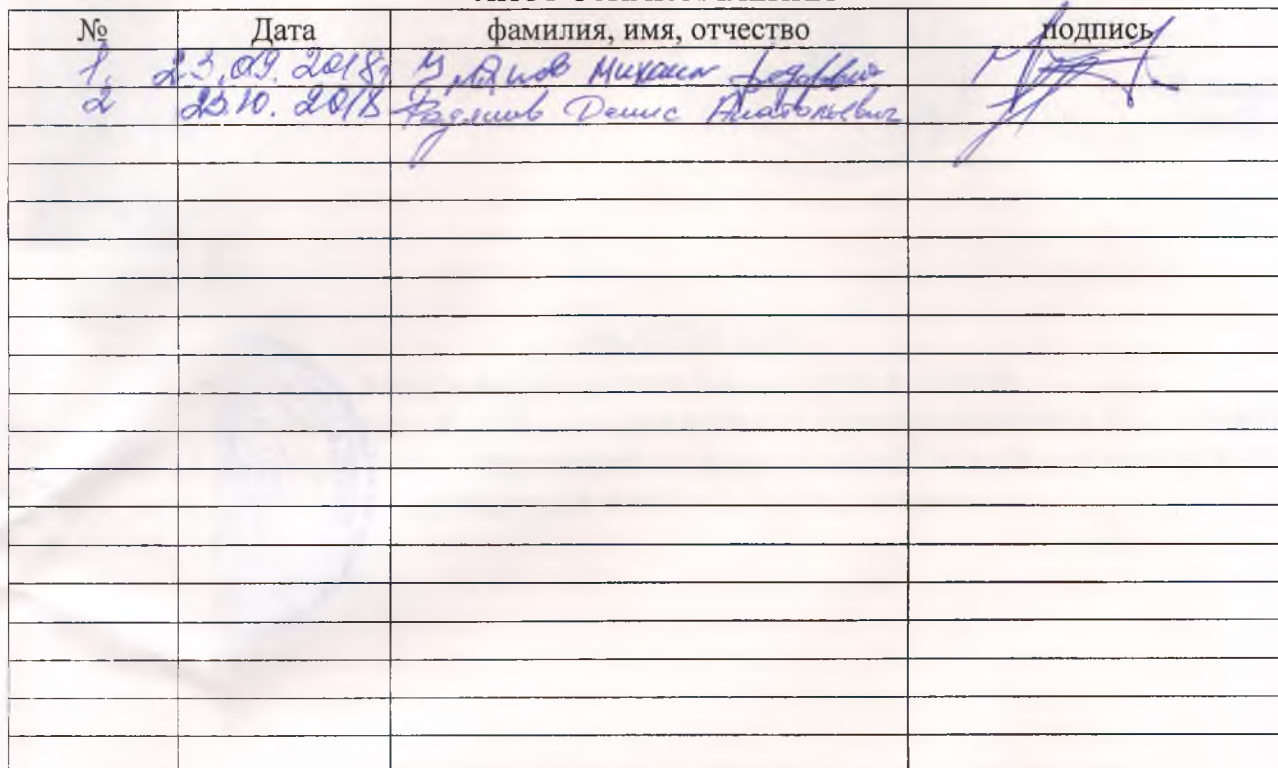 № Дата фамилия, имя, отчество подпись
1. 23.09.2018г Ульянов Михаил Федорович
2 23.10.2018 Денис Анатольевич